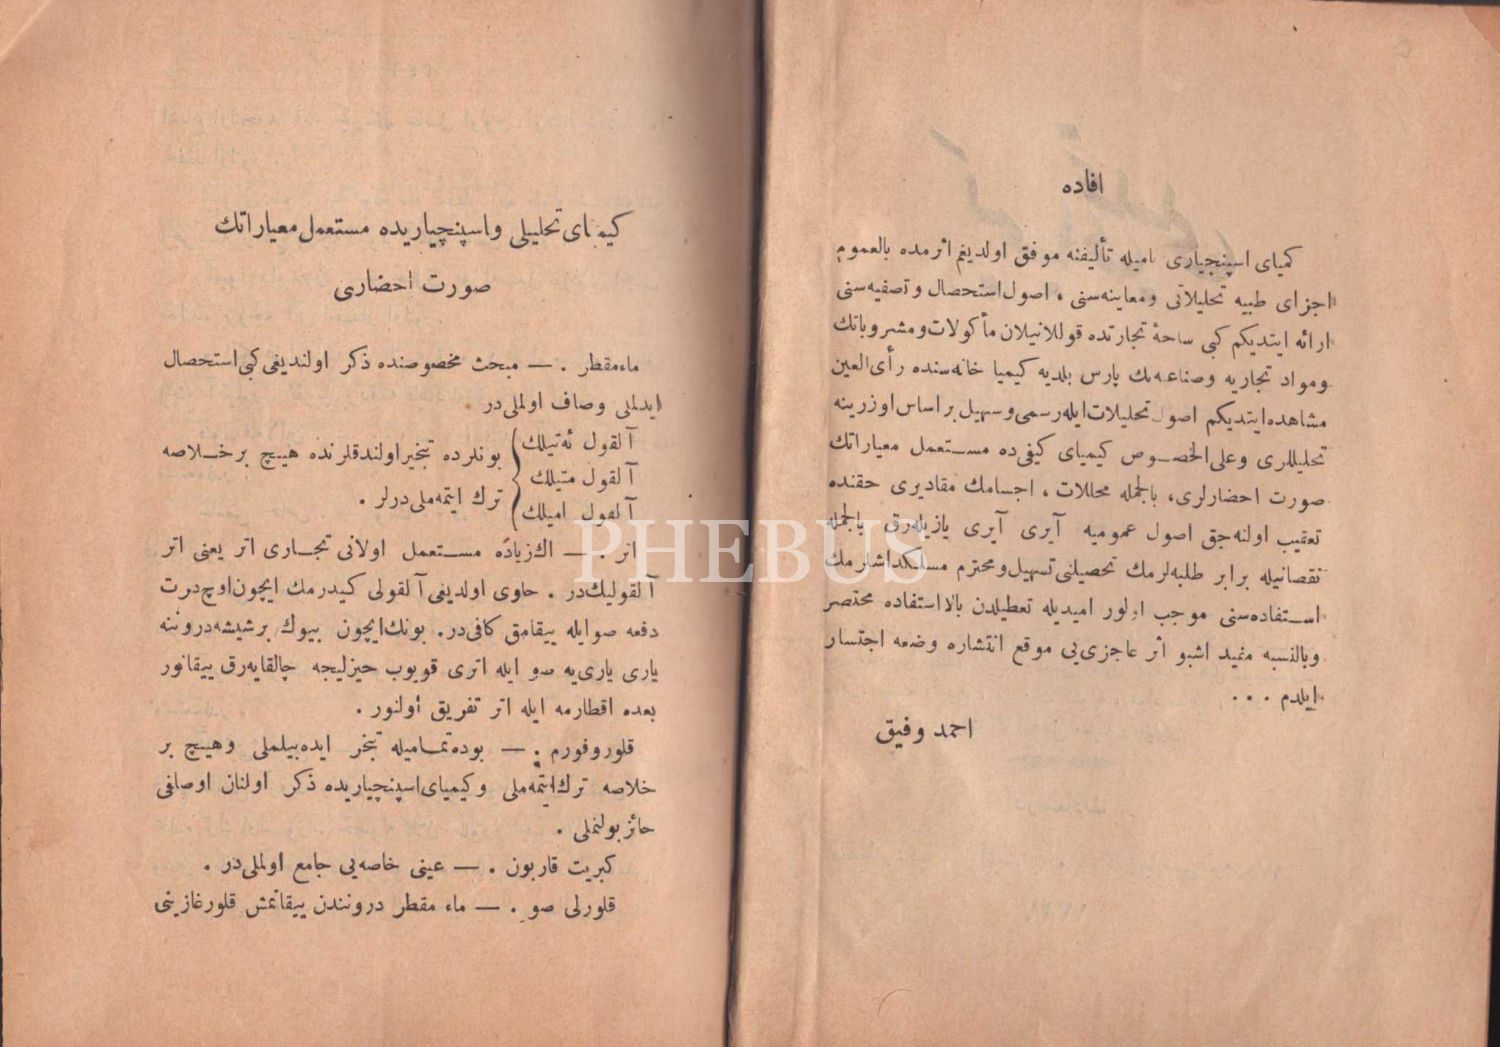 افاده
كميای اسپنجياری ناميله تأليفنه موفق اولديغم اثرمده بالعموم
اجزای طبيه تحليلاتی ومعاينه‌سنی ، اصول استحصال وتصفيه‌سنی
ارائه ايتديكم كبی ساحهٔ تجارتده قوللانيلان مأكولات ومشروباتك
ومواد تجاريه وصناعيه‌نك پارس بلديه كيميا خانه‌سنده رأی العين
مشاهده ايتديكم اصول تحليلات ايله رسمی وسهيل بر اساس اوزرينه
تحليللری وعلی الخصوص كيميای كيفی‌ده مستعمل معياراتك
صورت احضارلری، بالجمله محللات ، اجسامك مقاديری حقنده
تعقيب اولنه‌جق اصول عموميه آيری آيری يازيله‌رق بالجمله
نقصانيله برابر طلبه‌لرمك تحصيلنی تسهيل ومحترم مسلكداشلرمك
استفاده‌سنی موجب اولور اميديله تعطيلدن بالاستفاده مختصر
وبالنسبه مفيد اشبو اثر عاجزی‌يی موقع انتشاره وضعه اجتسار
ايلدم ...
احمد وفيق
كيميای تحليلی واسپنچياريده مستعمل معياراتك
صورت احضاری
ماء مقطر . — مبحث مخصوصنده ذكر اولنديغی كبی استحصال
ايدلملی وصاف اولملی‌در .
آلقول ئه‌تيليك
آلقول متيليك
آلقول اميليك
بونلرده تبخير اولندقلرنده هيچ بر خلاصه
ترك ايتمه‌ملی‌درلر .
اتر . — اك زياده مستعمل اولانی تجاری اتر يعنی اتر
آلقوليك‌در . حاوی اولديغی آلقولی كيدرمك ايچون اوچ درت
دفعه صو ايله ييقامق كافی‌در. بونك ايچون بيوك بر شيشه دروننه
ياری ياری‌يه صو ايله اتری قويوب حيزليجه چالقايه‌رق ييقانور
بعده اقطارمه ايله اتر تفريق اولنور .
قلوروفورم . — بوده تماميله تبخر ايده‌بيلملی وهيچ بر
خلاصه ترك ايتمه‌ملی وكيميای اسپنچياريده ذكر اولنان اوصافی
حائز بولنملی .
كبريت قاربون . — عينی خاصه‌يی جامع اولملی‌در .
قلورلی صو . — ماء مقطر دروننده ييقانمش قلور غازينی
PHEBUS